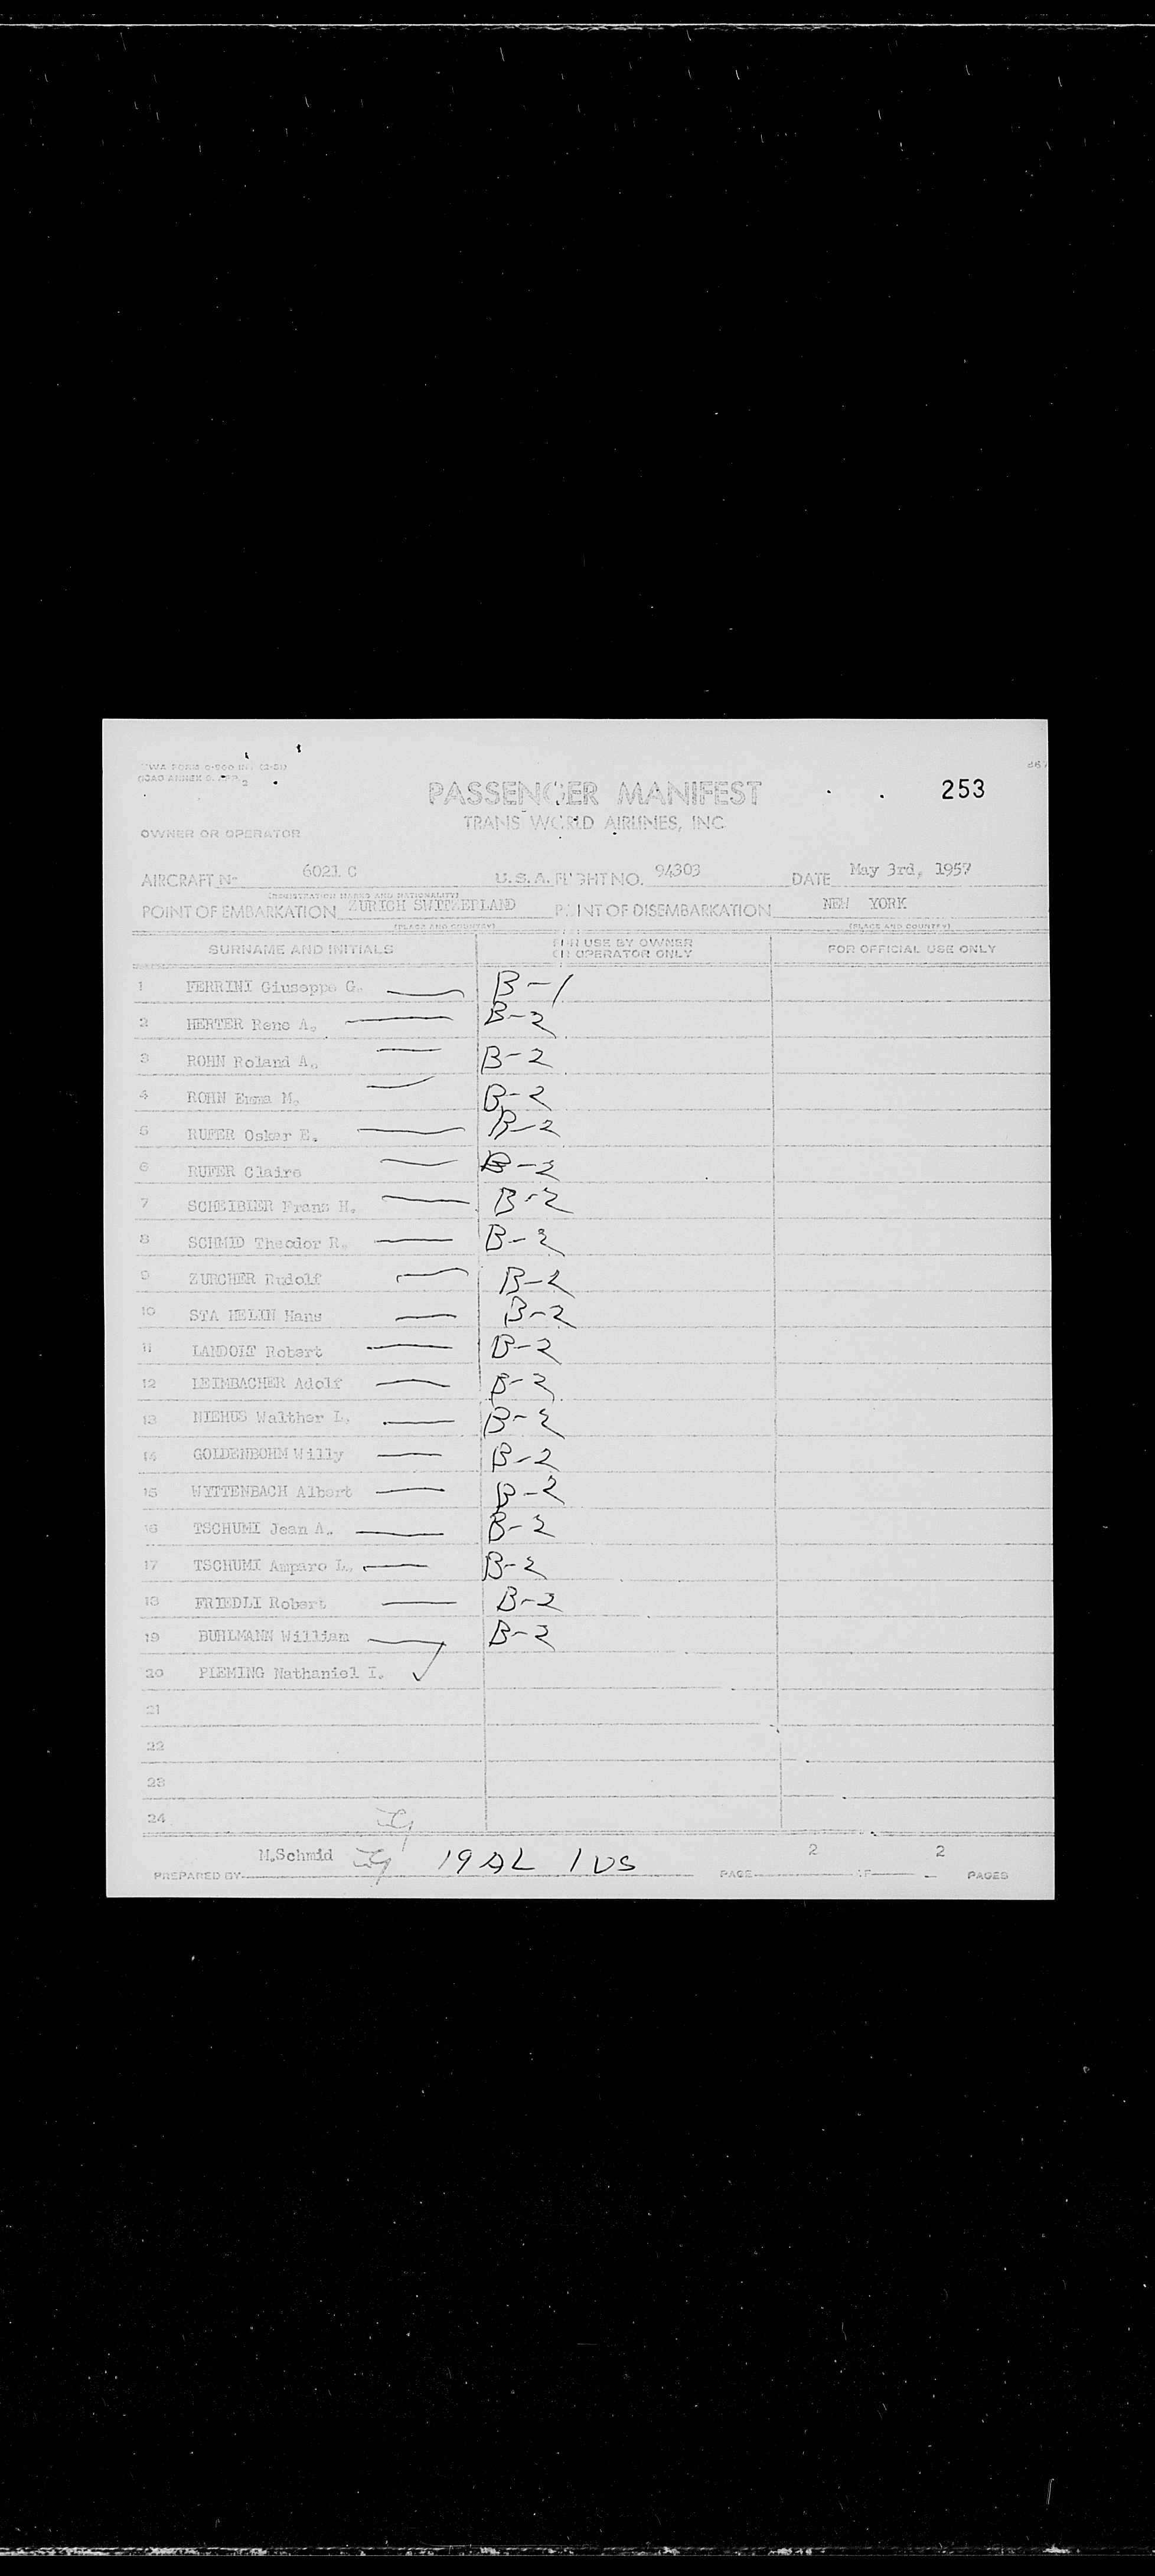 TWA FORM
ICAO ANNEX 9, APP. 2
PASSENGER MANIFEST 253
TRANS WORLD AIRLINES, INC
OWNER OR OPERATOR
AIRCRAFT No 6021 C U.S.A. FLIGHT NO. 94303 DATE May 3rd, 1957
(REGISTRATION MARKS AND NATIONALITY)
POINT OF EMBARKATION ZURICH SWITZERLAND POINT OF DISEMBARKATION NEW YORK
(PLACE AND COUNTRY) (PLACE AND COUNTRY)
SURNAME AND INITIALS FOR USE BY OWNER OR OPERATOR ONLY FOR OFFICIAL USE ONLY
1 FERRINI Giuseppe G. B-1
2 HERTER Rene A. B-2
3 ROHN Roland A. B-2
4 ROHN Emma M. B-2
5 RUFER Oskar E. B-2
6 RUFER Claire B-2
7 SCHEIBLER Franz H. B-2
8 SCHMID Theodor R. B-2
9 ZURCHER Rudolf B-2
10 STA HELIN Hans B-2
11 LANDOLT Robert B-2
12 LEIMBACHER Adolf B-2
13 NIEHUS Walther L. B-2
14 GOLDENBOHM Willy B-2
15 WYTTENBACH Albert B-2
16 TSCHUMI Jean A. B-2
17 TSCHUMI Amparo L. B-2
18 FRIEDLI Robert B-2
19 BUHLMANN William B-2
20 PIEMING Nathaniel I. ✓
21
22
23
24
PREPARED BY M.Schmid 19 AL 1 US PAGE 2 OF 2 PAGES